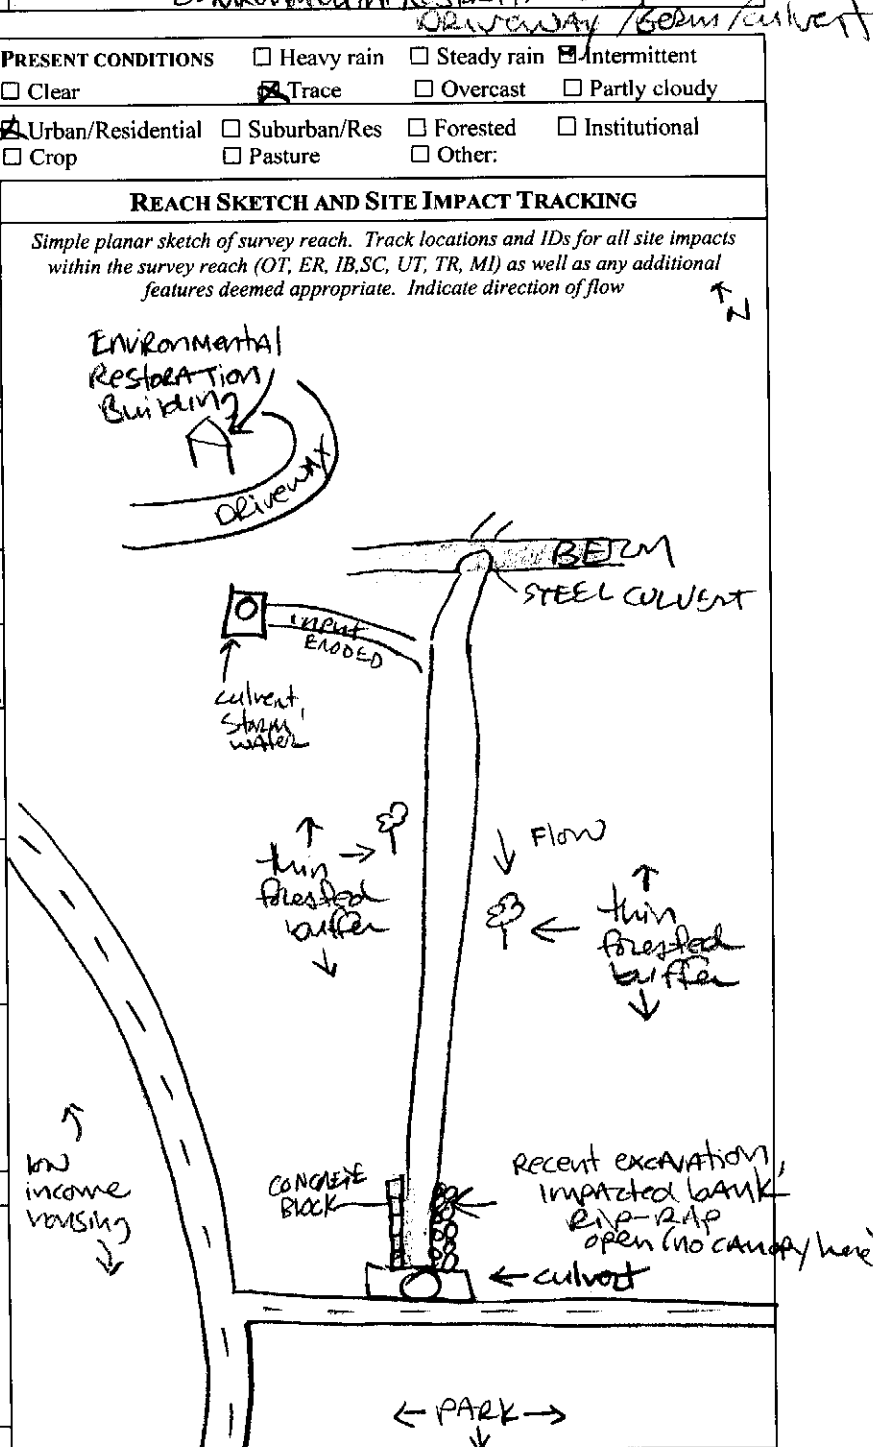 DRIVEWAY / BERM / culvert
PRESENT CONDITIONS ☐ Heavy rain ☐ Steady rain ☒ Intermittent
☐ Clear ☒ Trace ☐ Overcast ☐ Partly cloudy
☒ Urban/Residential ☐ Suburban/Res ☐ Forested ☐ Institutional
☐ Crop ☐ Pasture ☐ Other:
REACH SKETCH AND SITE IMPACT TRACKING
Simple planar sketch of survey reach. Track locations and IDs for all site impacts
within the survey reach (OT, ER, IB,SC, UT, TR, MI) as well as any additional
features deemed appropriate. Indicate direction of flow
N
Environmental
Restoration
Building
Driveway
BERM
STEEL CULVERT
input
ERODED
culvert,
storm
water
Flow
thin
forested
buffer
thin
forested
buffer
low
income
housing
CONCRETE
BLOCK
Recent excavation,
impacted bank
RIP-RAP
open (no canopy here)
culvert
PARK